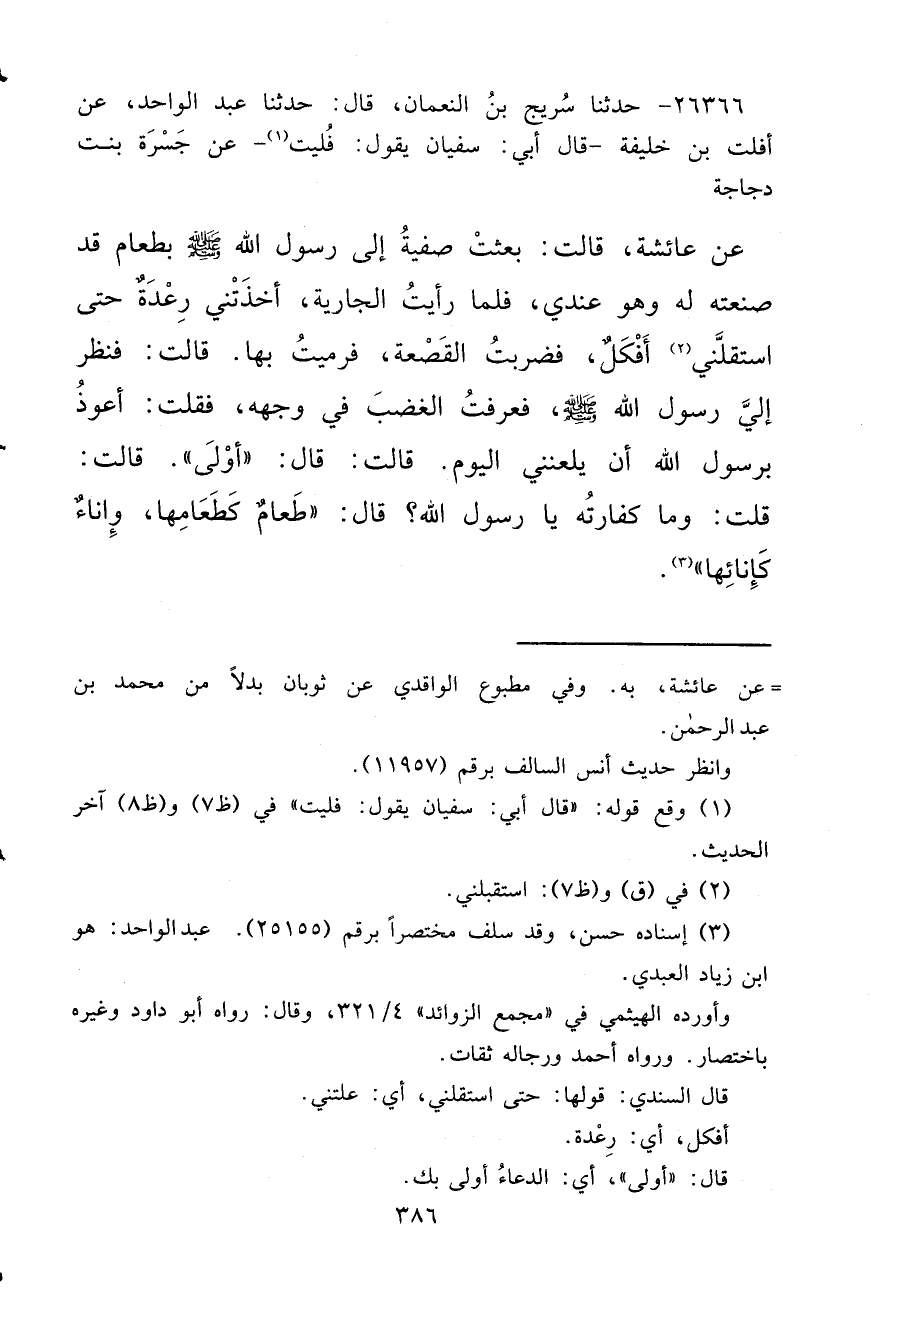 ٢٦٣٦٦- حدثنا سُريج بنُ النعمان، قال: حدثنا عبد الواحد، عن
أفلت بن خليفة -قال أبي: سفيان يقول: فُليت(١)- عن جَسْرَة بنت
دجاجة
عن عائشة، قالت: بعثتْ صفيةُ إلى رسول الله ﷺ بطعام قد
صنعته له وهو عندي، فلما رأيتُ الجارية، أخذَتْني رِعْدَةٌ حتى
استقلَّني(٢) أَفْكَلٌ، فضربتُ القَصْعة، فرميتُ بها. قالت: فنظر
إليَّ رسول الله ﷺ، فعرفتُ الغضبَ في وجهه، فقلت: أعوذُ
برسول الله أن يلعنني اليوم. قالت: قال: «أوْلَى». قالت:
قلت: وما كفارتُه يا رسول الله؟ قال: «طَعامٌ كَطَعَامِها، وإِناءٌ
كَإِنائِها»(٣).
= عن عائشة، به. وفي مطبوع الواقدي عن ثوبان بدلاً من محمد بن
عبد الرحمٰن.
وانظر حديث أنس السالف برقم (١١٩٥٧).
(١) وقع قوله: «قال أبي: سفيان يقول: فليت» في (ظ٧) و(ظ٨) آخر
الحديث.
(٢) في (ق) و(ظ٧): استقبلني.
(٣) إسناده حسن، وقد سلف مختصراً برقم (٢٥١٥٥). عبد الواحد: هو
ابن زياد العبدي.
وأورده الهيثمي في «مجمع الزوائد» ٣٢١/٤، وقال: رواه أبو داود وغيره
باختصار. ورواه أحمد ورجاله ثقات.
قال السندي: قولها: حتى استقلني، أي: علتني.
أفكل، أي: رِعْدة.
قال: «أولى»، أي: الدعاءُ أولى بك.
٣٨٦